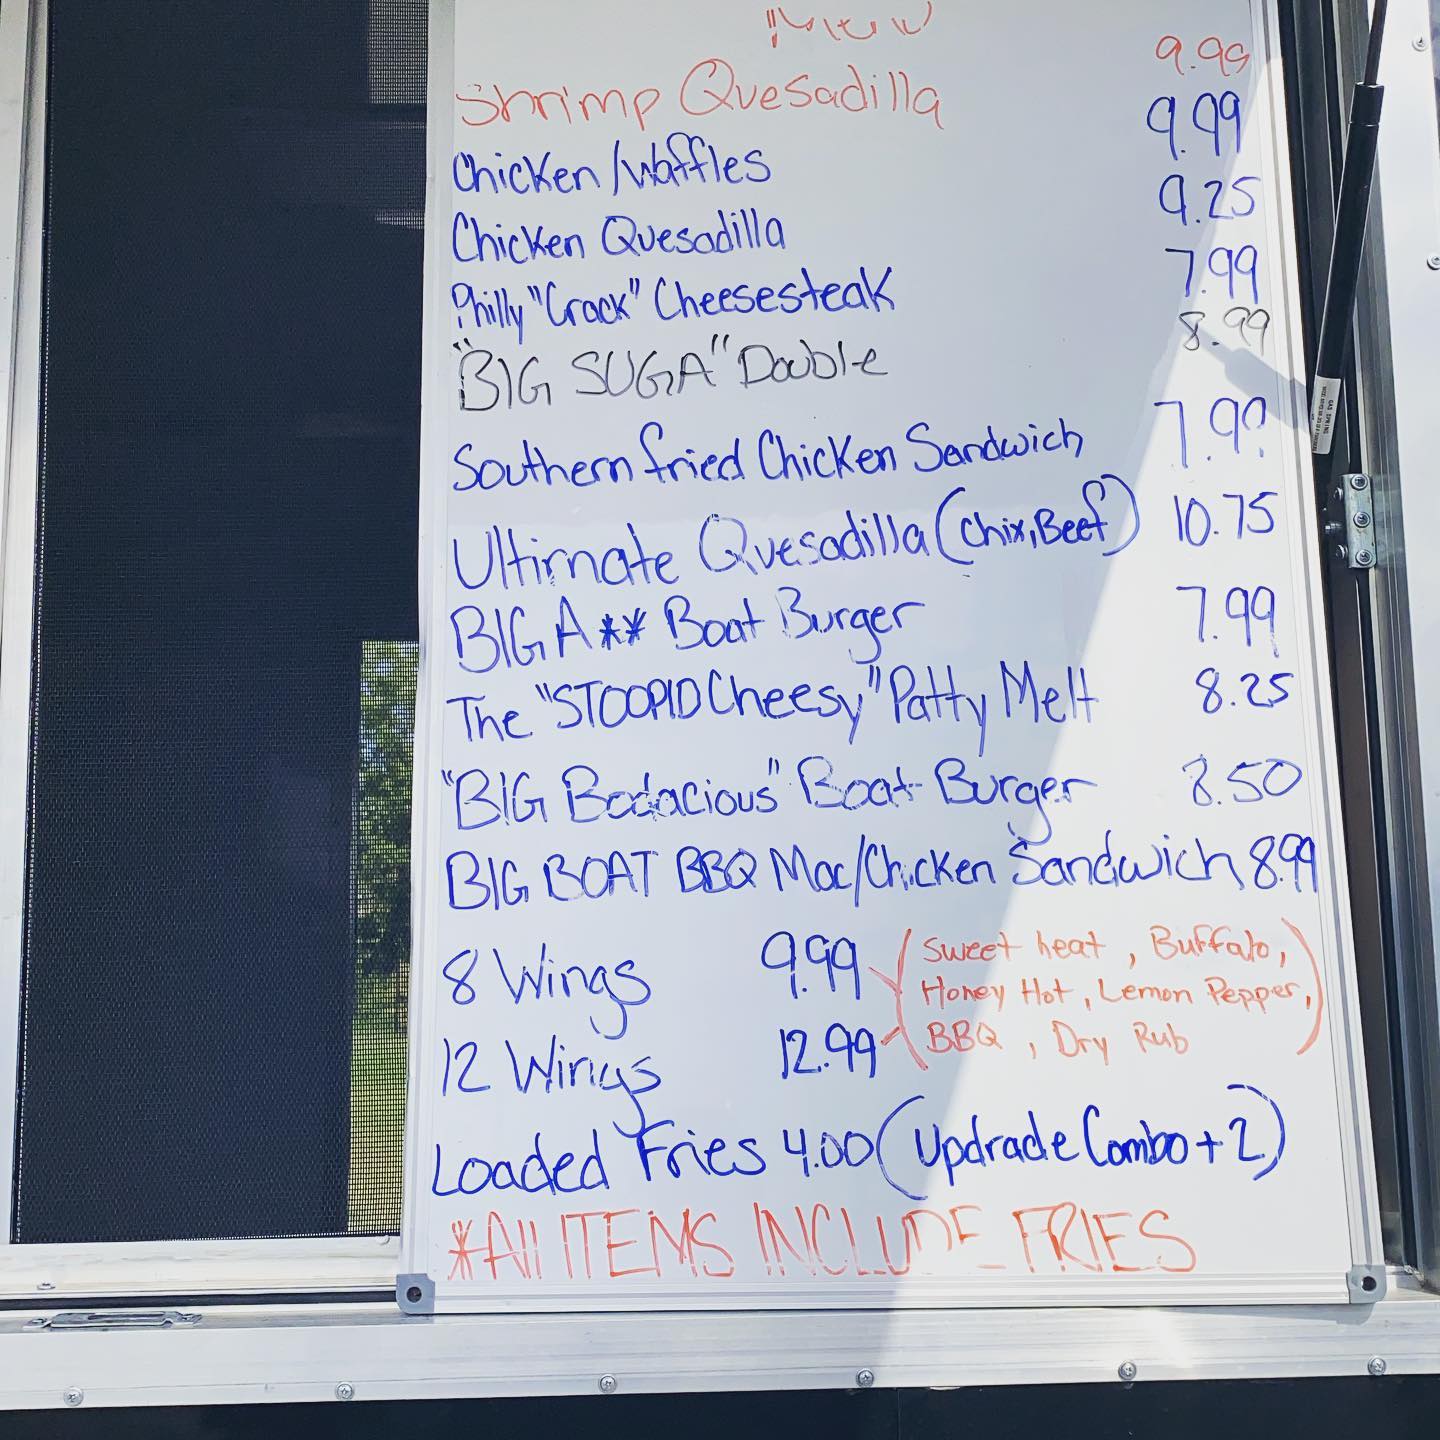 Menu
Shrimp Quesadilla 9.99
Chicken/Waffles 9.99
Chicken Quesadilla 9.25
Philly "Crack" Cheesesteak 7.99
"BIG SUGA" Double 8.99
Southern fried Chicken Sandwich 7.99
Ultimate Quesadilla (Chix, Beef) 10.75
BIG A** Boat Burger 7.99
The "STOOPID Cheesy" Patty Melt 8.25
"BIG Bodacious" Boat Burger 8.50
BIG BOAT BBQ Mac/Chicken Sandwich 8.99
8 Wings 9.99
12 Wings 12.99
(Sweet heat, Buffalo,
Honey Hot, Lemon Pepper,
BBQ, Dry Rub)
Loaded Fries 4.00 (Updrade Combo + 2)
*All ITEMS INCLUDE FRIES
GAS SPRING